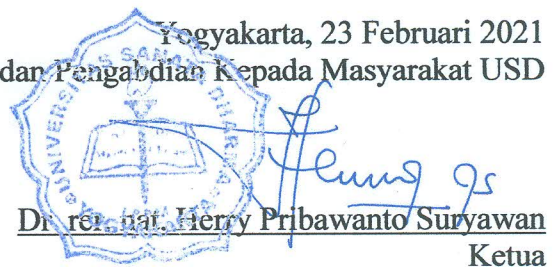 Yogyakarta, 23 Februari 2021
dan Pengabdian Kepada Masyarakat USD
UNIVERSITAS SANATA DHARMA
YOGYAKARTA
Dr. rer. nat. Herry Pribawanto Suryawan
Ketua